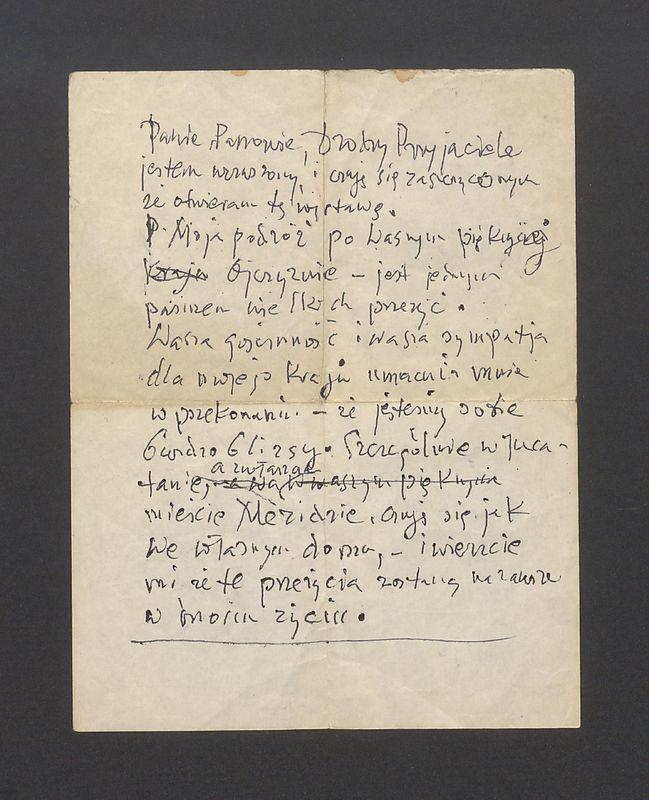 Panie, Panowie, Drodzy Przyjaciele
jestem wzruszony, i czuję się zaszczyconym
że otwieram tę wystawę.
Moja podróż po Waszym pięknej
kraju Ojczyźnie – jest jednym
pasmem wielkich przeżyć.
Wasza gościnność i wasza sympatja
dla mojego kraju umacnia mnie
w przekonaniu – że jesteśmy sobie
bardzo bliscy. Szczególnie w Juca-
tanie, a zwłaszcza waszym pięknym
mieście Meridzie, czuję się jak
we własnym domu, – i wierzcie
mi że te przeżycia zostaną na zawsze
w moim życiu.